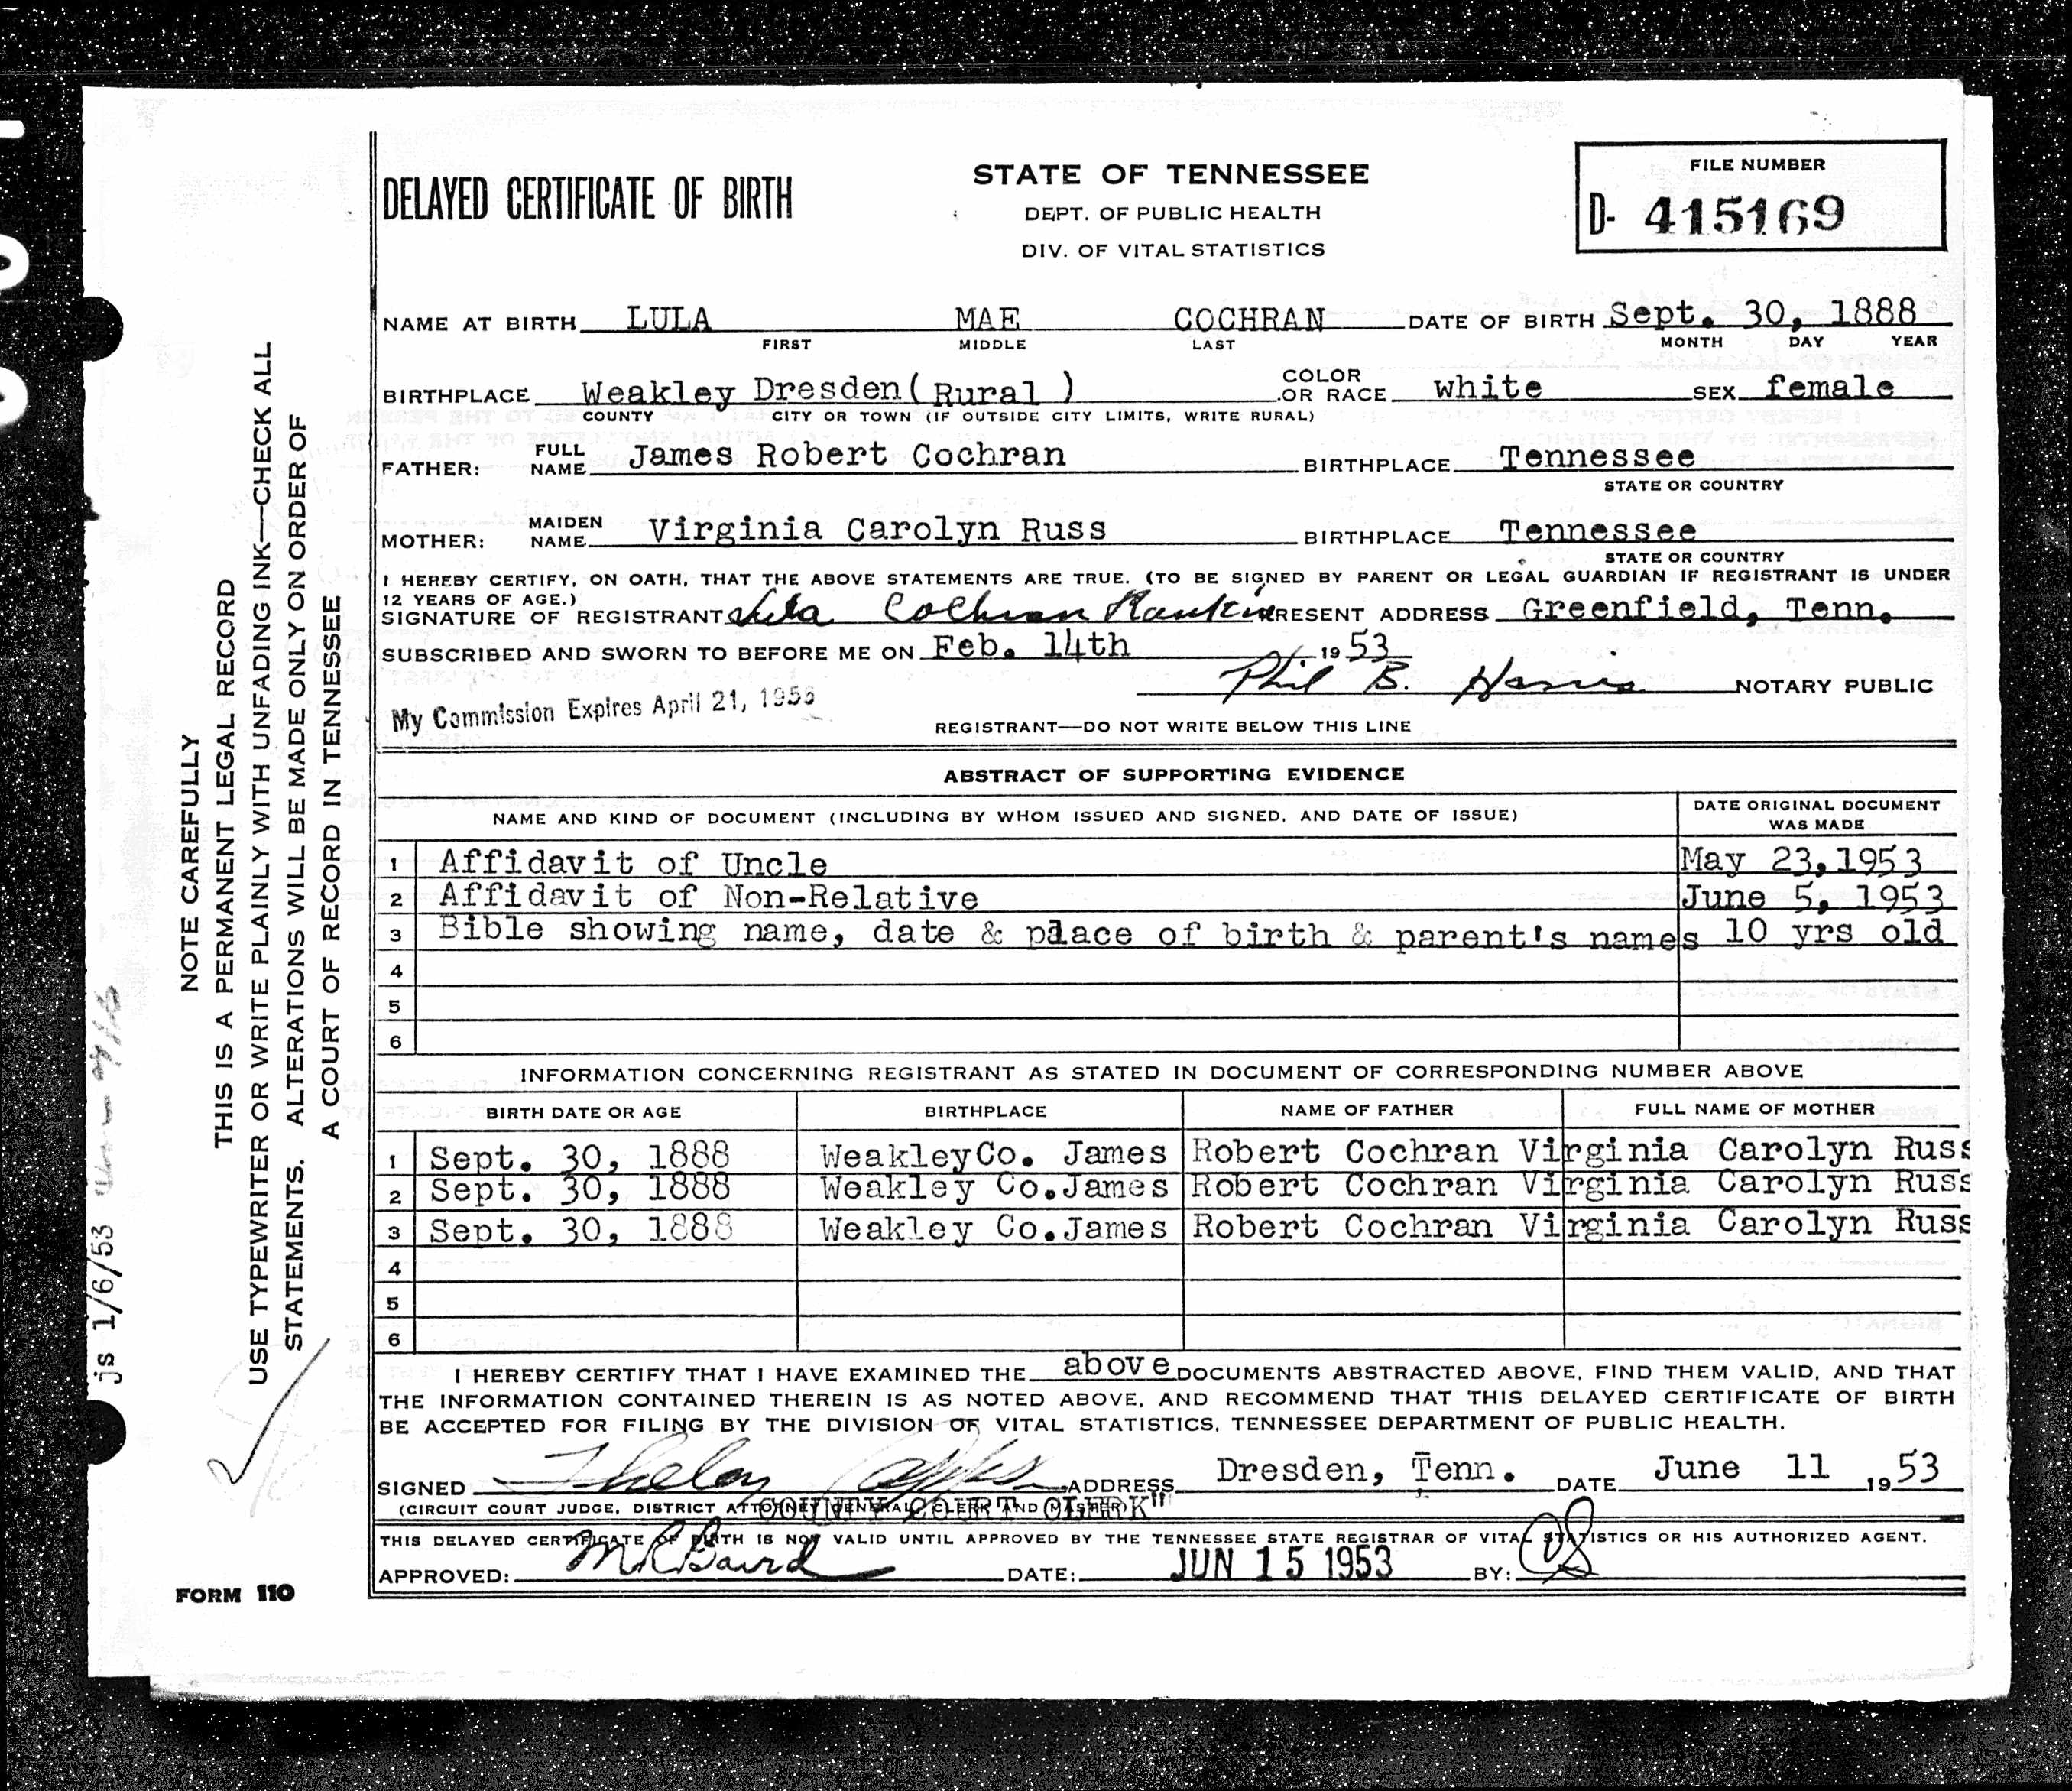 DELAYED CERTIFICATE OF BIRTH
STATE OF TENNESSEE
DEPT. OF PUBLIC HEALTH
DIV. OF VITAL STATISTICS
FILE NUMBER
D- 415169
NAME AT BIRTH LULA MAE COCHRAN DATE OF BIRTH Sept. 30, 1888
FIRST MIDDLE LAST MONTH DAY YEAR
BIRTHPLACE Weakley Dresden (Rural ) COLOR OR RACE white SEX female
COUNTY CITY OR TOWN (IF OUTSIDE CITY LIMITS, WRITE RURAL)
FATHER: FULL NAME James Robert Cochran BIRTHPLACE Tennessee
STATE OR COUNTRY
MOTHER: MAIDEN NAME Virginia Carolyn Russ BIRTHPLACE Tennessee
STATE OR COUNTRY
I HEREBY CERTIFY, ON OATH, THAT THE ABOVE STATEMENTS ARE TRUE. (TO BE SIGNED BY PARENT OR LEGAL GUARDIAN IF REGISTRANT IS UNDER
12 YEARS OF AGE.)
SIGNATURE OF REGISTRANT Lula Cochran Rankin PRESENT ADDRESS Greenfield, Tenn.
SUBSCRIBED AND SWORN TO BEFORE ME ON Feb. 14th 1953
Phil B. Harris NOTARY PUBLIC
My Commission Expires April 21, 1956
REGISTRANT—DO NOT WRITE BELOW THIS LINE
ABSTRACT OF SUPPORTING EVIDENCE
NAME AND KIND OF DOCUMENT (INCLUDING BY WHOM ISSUED AND SIGNED, AND DATE OF ISSUE) DATE ORIGINAL DOCUMENT WAS MADE
1 Affidavit of Uncle May 23,1953
2 Affidavit of Non-Relative June 5, 1953
3 Bible showing name, date & place of birth & parent's names 10 yrs old
4
5
6
INFORMATION CONCERNING REGISTRANT AS STATED IN DOCUMENT OF CORRESPONDING NUMBER ABOVE
BIRTH DATE OR AGE BIRTHPLACE NAME OF FATHER FULL NAME OF MOTHER
1 Sept. 30, 1888 WeakleyCo. James Robert Cochran Virginia Carolyn Russ
2 Sept. 30, 1888 Weakley Co.James Robert Cochran Virginia Carolyn Russ
3 Sept. 30, 1888 Weakley Co.James Robert Cochran Virginia Carolyn Russ
4
5
6
I HEREBY CERTIFY THAT I HAVE EXAMINED THE above DOCUMENTS ABSTRACTED ABOVE, FIND THEM VALID, AND THAT
THE INFORMATION CONTAINED THEREIN IS AS NOTED ABOVE, AND RECOMMEND THAT THIS DELAYED CERTIFICATE OF BIRTH
BE ACCEPTED FOR FILING BY THE DIVISION OF VITAL STATISTICS, TENNESSEE DEPARTMENT OF PUBLIC HEALTH.
SIGNED ADDRESS Dresden, Tenn. DATE June 11 1953
(CIRCUIT COURT JUDGE, DISTRICT ATTORNEY GENERAL, CLERK AND MASTER)
COUNTY COURT CLERK"
THIS DELAYED CERTIFICATE OF BIRTH IS NOT VALID UNTIL APPROVED BY THE TENNESSEE STATE REGISTRAR OF VITAL STATISTICS OR HIS AUTHORIZED AGENT.
APPROVED: DATE: JUN 15 1953 BY:
FORM 110
NOTE CAREFULLY
THIS IS A PERMANENT LEGAL RECORD
USE TYPEWRITER OR WRITE PLAINLY WITH UNFADING INK—CHECK ALL
STATEMENTS. ALTERATIONS WILL BE MADE ONLY ON ORDER OF
A COURT OF RECORD IN TENNESSEE
js 1/6/53